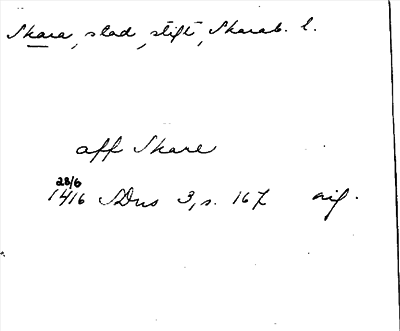 Skara, stad, stift, Skarab. l.
aff Skare
28/6
1416 SDns 3, s. 167 orig.